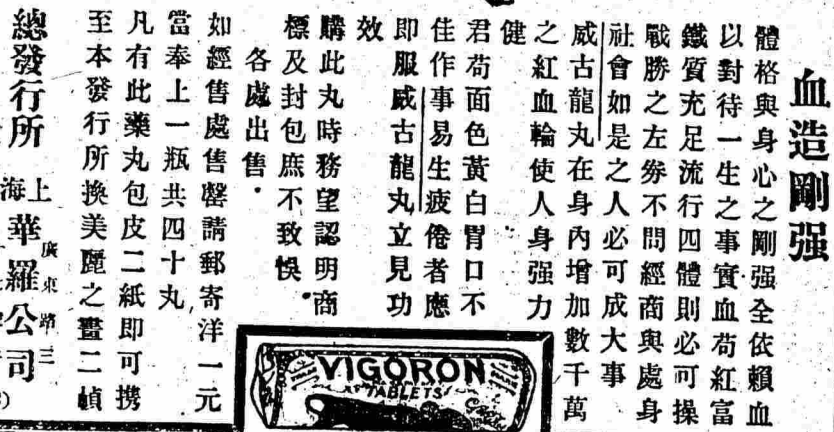 血造剛强
體格與身心之剛强全依賴血
以對待一生之事實血苟紅富
鐵質充足流行四體則必可操
戰勝之左劵不問經商與處身
社會如是之人必可成大事
威古龍丸在身內增加數千萬
之紅血輪使人身强力
健
君苟面色黃白胃口不
佳作事易生疲倦者應
即服威古龍丸立見功
效
購此丸時務望認明商
標及封包庶不致悞.
各處出售.
如經售處售罄請郵寄洋一元
當奉上一瓶共四十丸
凡有此藥丸包皮二紙即可携
至本發行所換美麗之畫二幀
總發行所
上海
廣東路三
華羅公司
VIGORON
TABLETS